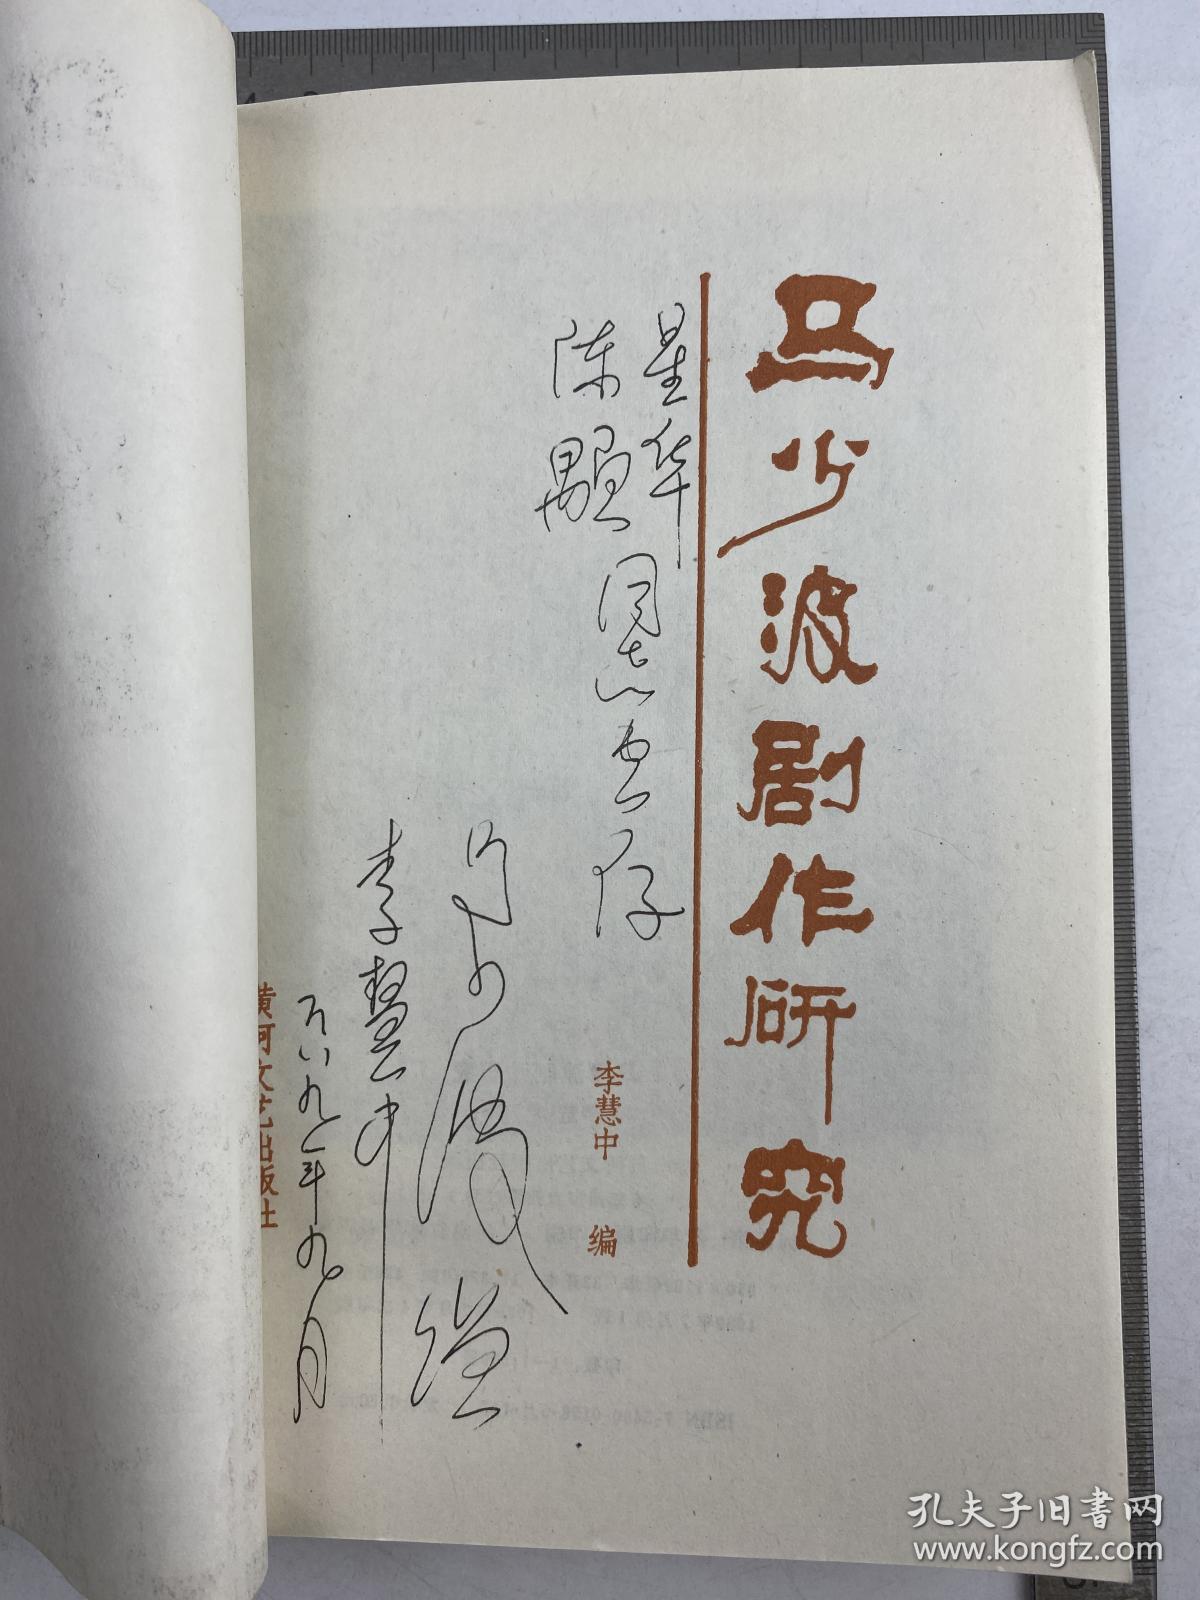 马少波剧作研究
李慧中 编
星华
陈颙
同志惠存
马少波
李慧中
一九八九年九月
黄河文艺出版社
孔夫子旧书网
www.kongfz.com